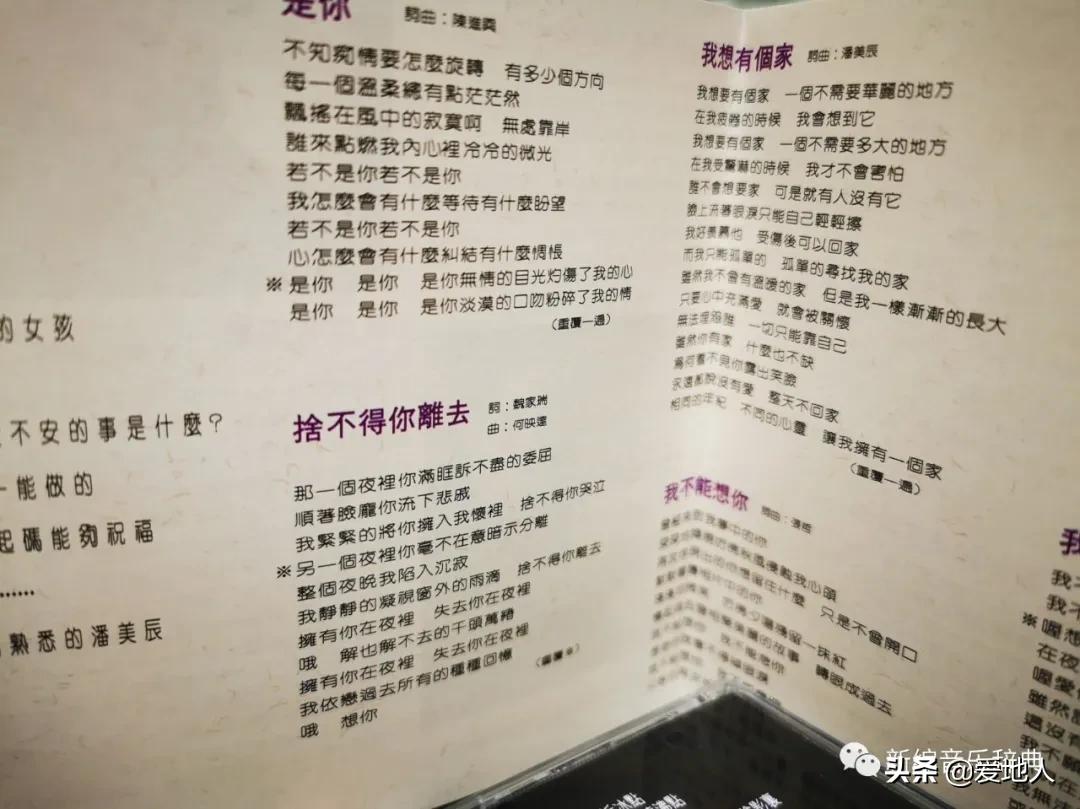 的女孩
不安的事是什麼?
能做的
起碼能夠祝福
......
熟悉的潘美辰
是你
詞曲:陳進興
不知痴情要怎麼旋轉 有多少個方向
每一個溫柔總有點茫茫然
飄搖在風中的寂寞啊 無處靠岸
誰來點燃我內心裡冷冷的微光
若不是你若不是你
我怎麼會有什麼等待有什麼盼望
若不是你若不是你
心怎麼會有什麼糾結有什麼惆悵
※是你 是你 是你無情的目光灼傷了我的心
是你 是你 是你淡漠的口吻粉碎了我的情
(重覆一遍)
捨不得你離去
詞:魏家瑞
曲:何映達
那一個夜裡你滿眶訴不盡的委屈
順著臉龐你流下悲戚
我緊緊的將你擁入我懷裡 捨不得你哭泣
※另一個夜裡你毫不在意暗示分離
整個夜晚我陷入沉寂
我靜靜的凝視窗外的雨滴 捨不得你離去
擁有你在夜裡 失去你在夜裡
哦 解也解不去的千頭萬緒
擁有你在夜裡 失去你在夜裡
我依戀過去所有的種種回憶
(重覆※)
哦 想你
我想有個家
詞曲:潘美辰
我想要有個家 一個不需要華麗的地方
在我疲倦的時候 我會想到它
我想要有個家 一個不需要多大的地方
在我受驚嚇的時候 我才不會害怕
誰不會想要家 可是就有人沒有它
臉上流著眼淚只能自己輕輕擦
我好羨慕他 受傷後可以回家
而我只能孤單的 孤單的尋找我的家
雖然我不曾有溫暖的家 但是我一樣漸漸的長大
只要心中充滿愛 就會被關懷
無法埋怨誰 一切只能靠自己
雖然你有家 什麼也不缺
為何看不見你露出笑臉
永遠都說沒有愛 整天不回家
相同的年紀 不同的心靈 讓我擁有一個家
(重覆一遍)
我不能想你
詞曲:
夢中的你
我心頭
什麼 只是不會開口
中的你
留一抹紅
的故事 轉眼成過去
我
我不
我不
※喔想
在夜
喔愛
雖然
還沒有
我不願
新编音乐辞典
头条 @爱地人